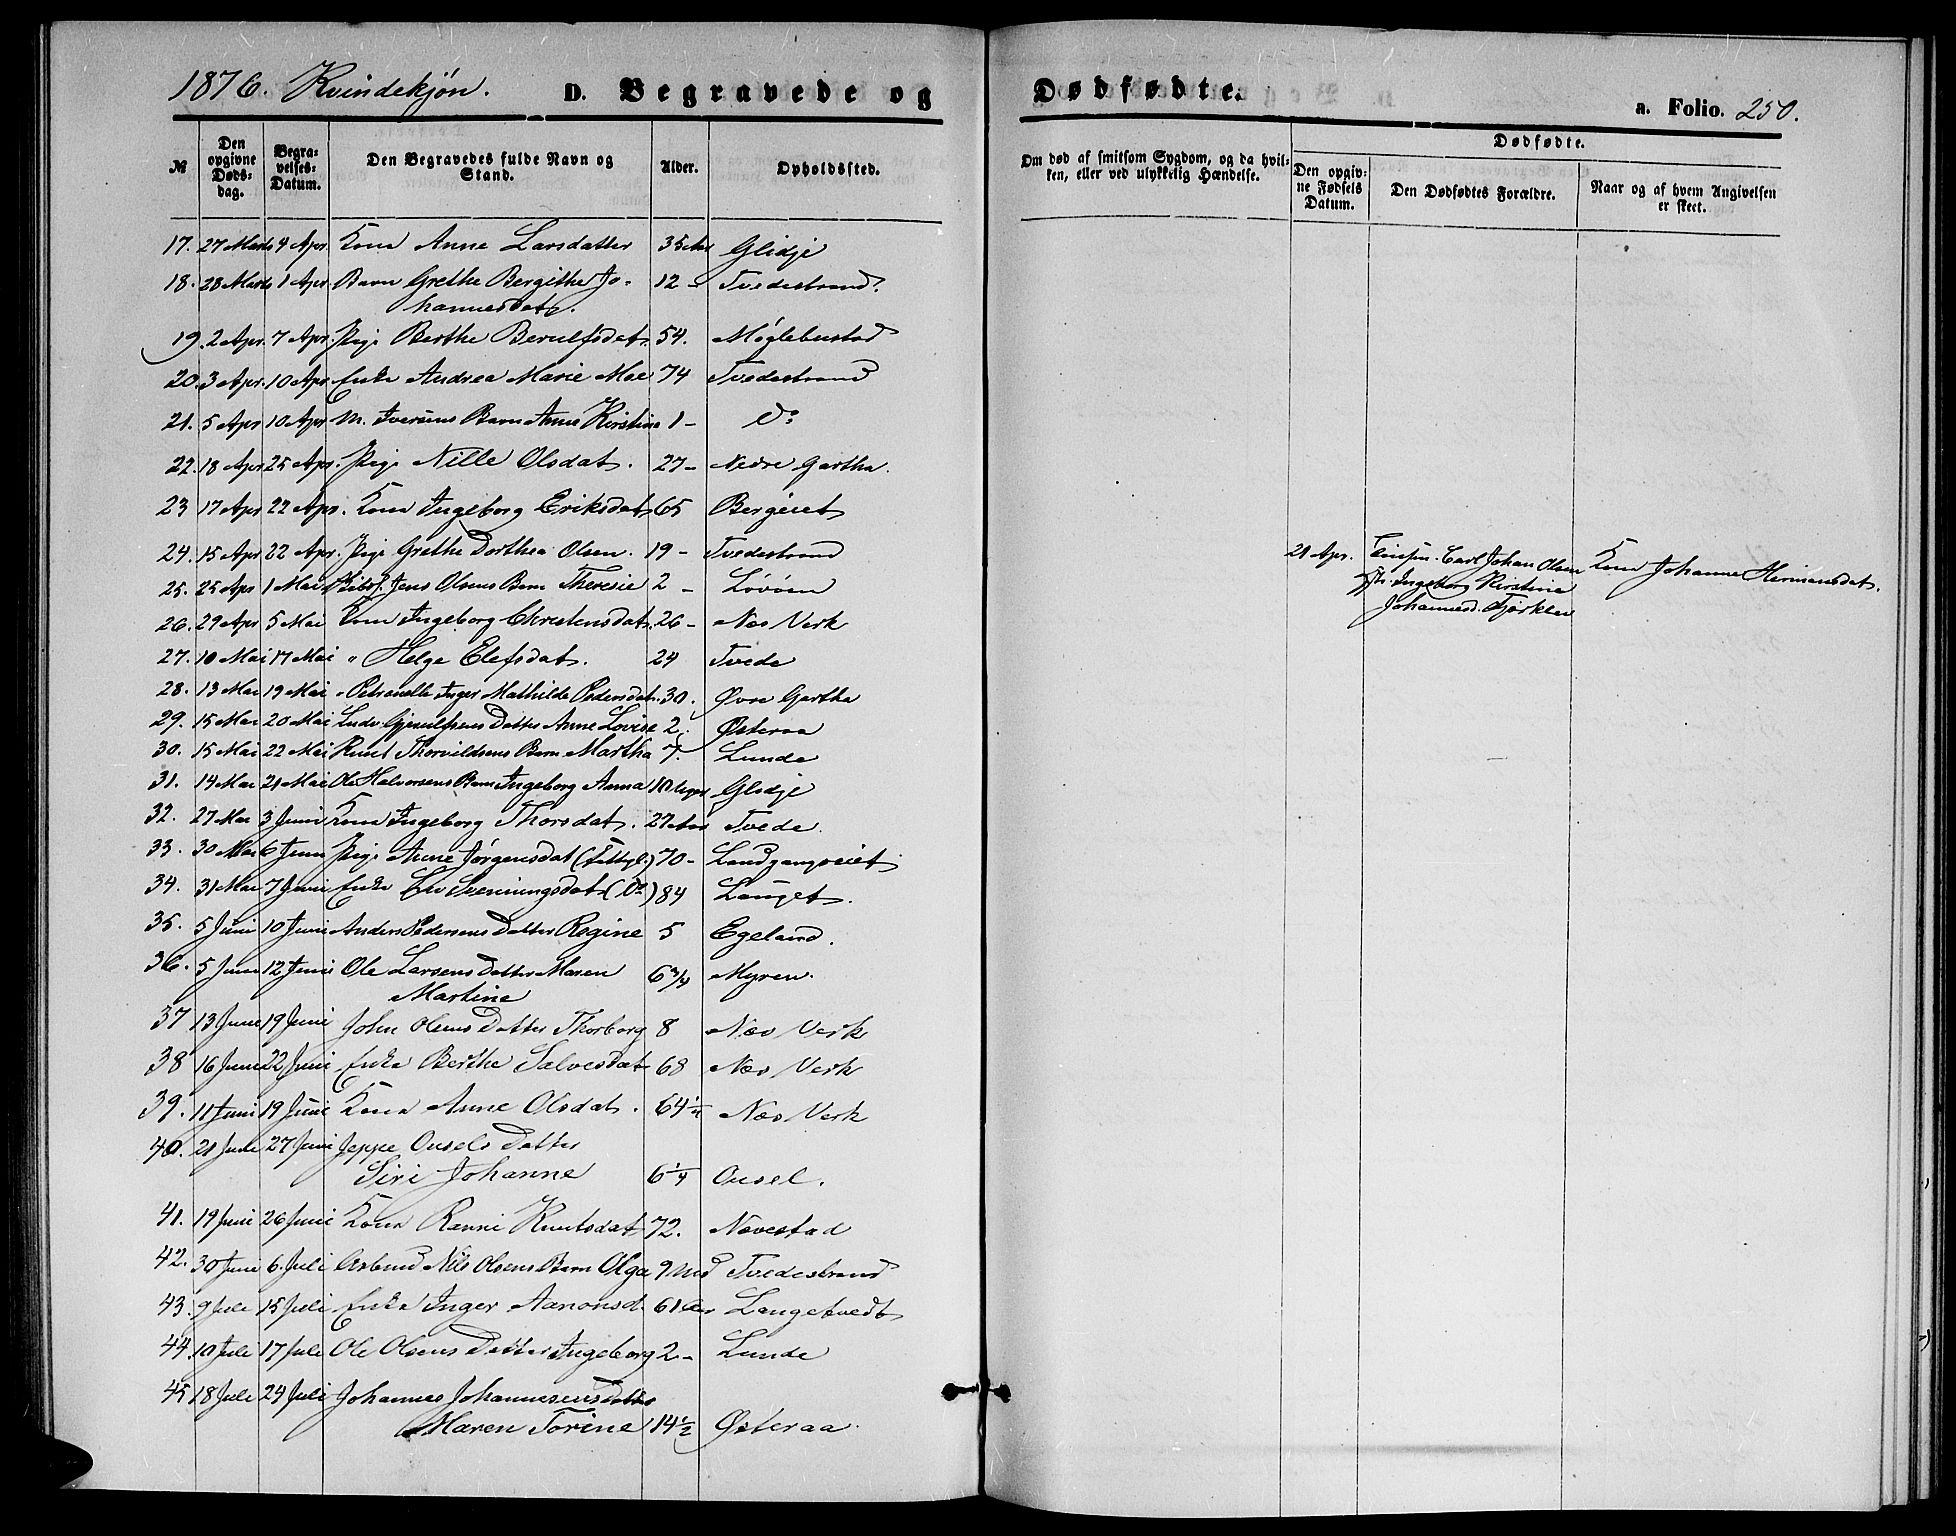 1876. Kvindekjön. D. Begravede og Dødfødte. a. Folio. 250.
№ Den opgivne Døds-dag. Begra-velses-Datum. Den Begravedes fulde Navn og Stand. Alder. Opholdssted. Om død af smitsom Sygdom, og da hvil-ken, eller ved ulykkelig Hændelse. Dødfødte. Den opgiv-ne Fødsels Datum. Den Dødfødtes Forældre. Naar og af hvem Angivelsen er skeet.
17. 27 Marts 4 Apr. Kona Anne Larsdatter 35 Aar Glidje
18. 28 Marts 1 Apr. Barn Grethe Bergithe Jo-
hannesdatr. 12 - Tvedestrand
19. 2 Apr. 7 Apr. Pige Berthe Berulfsdatr. 54. Møglebustad
20. 3 Apr. 10 Apr. Enke Andrea Marie Moe 74 Tvedestrand
21. 5 Apr 10 Apr M. Iversens Barn Anne Kirstine 1 - Do
22. 18 Apr 25 Apr. Pige Nille Olsdatr. 27 - Nedre Gartha.
23 17 Apr 22 Apr. Kona Ingeborg Eriksdatr 65 Bergeiet
24. 15 Apr 22 Apr. Pige Grethe Dorthea Olsen. 19 - Tvedestrand
25. 25 Apr 1 Mai Jens Olsens Barn Theresie 2 - Lövöen
26. 29 Apr 5 Mai Kona Ingeborg Christensdatr. 26 - Næs Verk
27. 10 Mai 17 Mai " Helge Elefsdatr. 24 Tvede
28. 13 Mai 19 Mai " Petronelle Inger Mathilde Pedersdatr. 30. Øvre Gartha
29. 15 Mai 20 Mai Datter Anne Lovise 2. Østeraa
30. 15 Mai 22 Mai Knut Thorvildsens Barn Martha 7. Lunde
31. 14 Mai 21 Mai Ole Halvorsens Barn Ingeborg Anna 10 Uger Glidje
32. 27 Mai 3 Juni Kona Ingeborg Thorsdatr. 27 Aar Tvede.
33. 30 Mai 6 Juni Pige Anne Jörgensdat (Fattigl.) 70 - Landgangseiet
34. 31 Mai 7 Juni Enke Liv Svenningsdatr (Do) 84 Lauget.
35. 5 Juni 10 Juni Anders Pedersens Datter Regine 5 Egeland.
36. 5 Juni 12 Juni Ole Larsens Datter Maren
Martine 6 3/4 Myren.
37 13 Juni 19 Juni John Olsens Datter Thorborg 8 Næs Verk
38 16 Juni 22 Juni Enke Berthe Salvesdatr 68 Næs Verk
39. 11 Juni 19 Juni Kona Anne Olsdatr. 64 1/4 Næs Verk
40. 21 Juni 27 Juni Jeppe Ousels Datter
Siri Johanne 6 1/4 Ousel.
41. 19 Juni 26 Juni Kona Ranni Knutsdatr 72. Nævestad
42. 30 Juni 6. Juli Arbmd Nils Olsens Barn Olga 9 Md Tvedestrand
43. 9 Juli 15 Juli Enke Inger Aanonsd. 61 Aar Langetvedt
44. 10 Juli 17 Juli Ole Olsens Datter Ingeborg 2 - Lunde
45. 18 Juli 24 Juli Johannes Johannesens Datter
Maren Torine 14 1/2 Østeraa
21 Apr. Carl Johan Olsen Kona Johanne Hermansdatr.
Ingeborg Kirstine
Johannesd. Fjörkleiv